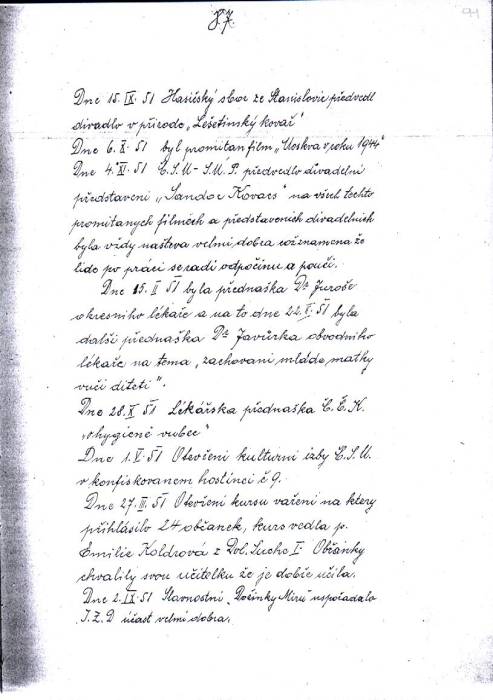 87.
94
Dne 15. IX. 51 Hasičský sbor ze Stanislovic předvedl
divadlo v přírodě „Lešetínský kovář"
Dne 6. X. 51 byl promítan film „Moskva v roku 1944"
Dne 4. XI. 51 Č.S.M - S.M.P. předvedlo divadelní
představení „Sandor Kovacs" na všech těchto
promítanych filměch a představeních divadelních
byla vždy naštěva velmi dobra což znamena že
lide po práci se radi odpočinu a poučí.
Dne 15. II 51 byla přednáška Dr Juroše
okresního lékaře a na to dne 22. V. 51 byla
další přednáška Dr Javůrka obvodního
lékaře na tema „zachovani mládé matky
vuči dítěti".
Dne 28. X 51 Lékářska přednáška Č.Č.K.
„o hygieně vubec"
Dne 1. V. 51 Otevřeni kulturní izby Č.S.M.
v konfiskovanem hostinci č 9.
Dne 27. III. 51 Otevřeni kursu vařeni na ktery
přihlásilo 24 občanek, kurs vedla p.
Emilie Koldrová z Dol. Lucho I. Občánky
chvalily svou učitelku že je dobře učila.
Dne 2. IX 51 Slavnostní „Dožinky Míru" uspořadalo
J.Z.D účast velmi dobra.